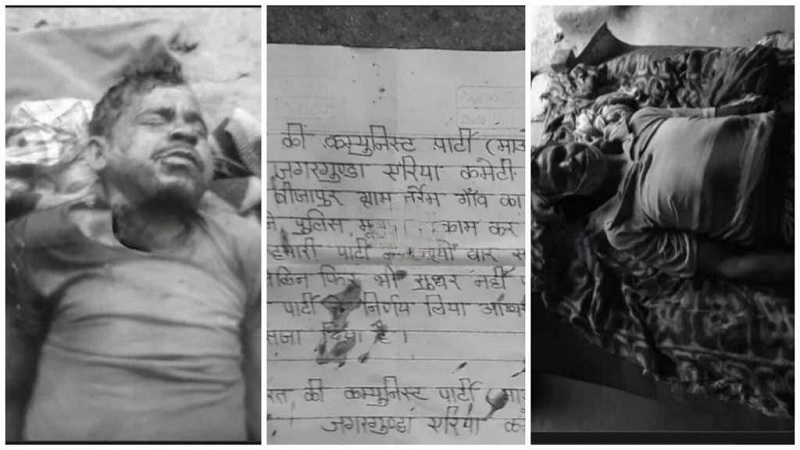 की कम्युनिस्ट पार्टी (माउ
जगरगुण्डा एरिया कमेटी
बीजापुर ग्राम तर्रेम गाँव का
पुलिस काम कर
हमारी पार्टी वार
फिर भी सुधर नहीं
पार्टी निर्णय लिया
सजा दिया है।
की कम्युनिस्ट पार्टी (मा
जगरगुण्डा एरिया क